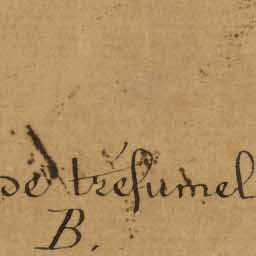 de trésumel
B.